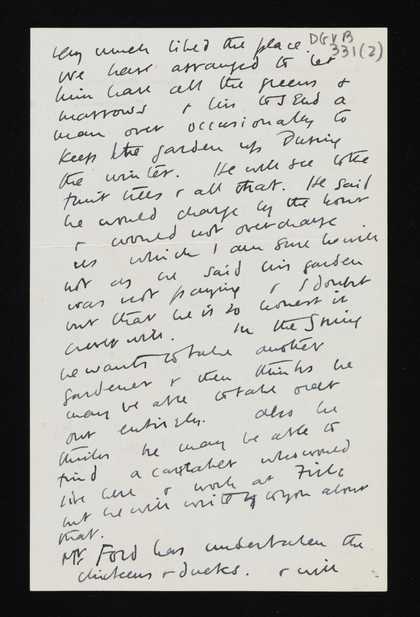 very much liked the place.
DGVB
331(2)
We have arranged to let
him have all the greens &
marrows & his to send a
man over occasionally to
keep the garden up During
the winter. He will see to the
fruit trees & all that. He said
he would charge by the hour
& would not overcharge
us which I am sure he will
not as he said his garden
was not paying & I doubt
but that he is so honest it
never will. In the Spring
he wants to take another
gardener & then thinks he
may be able to take over
our entirely. Also he
thinks he may be able to
find a caretaker who would
live here & work at Firle
but he will write to you about
that.
Mr Ford has undertaken the
chickens & ducks. & will